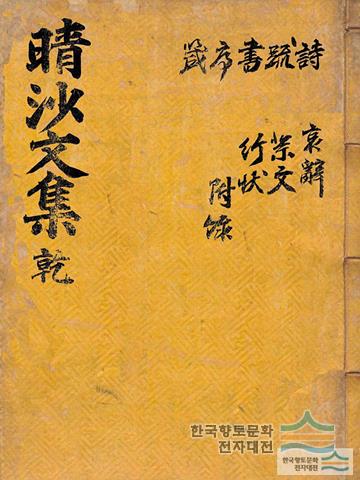 晴沙文集 乾
詩 疏 書 序 箴
哀辭
祭文
行狀
附錄
한국향토문화
전자대전
한국향토문화
전자대전